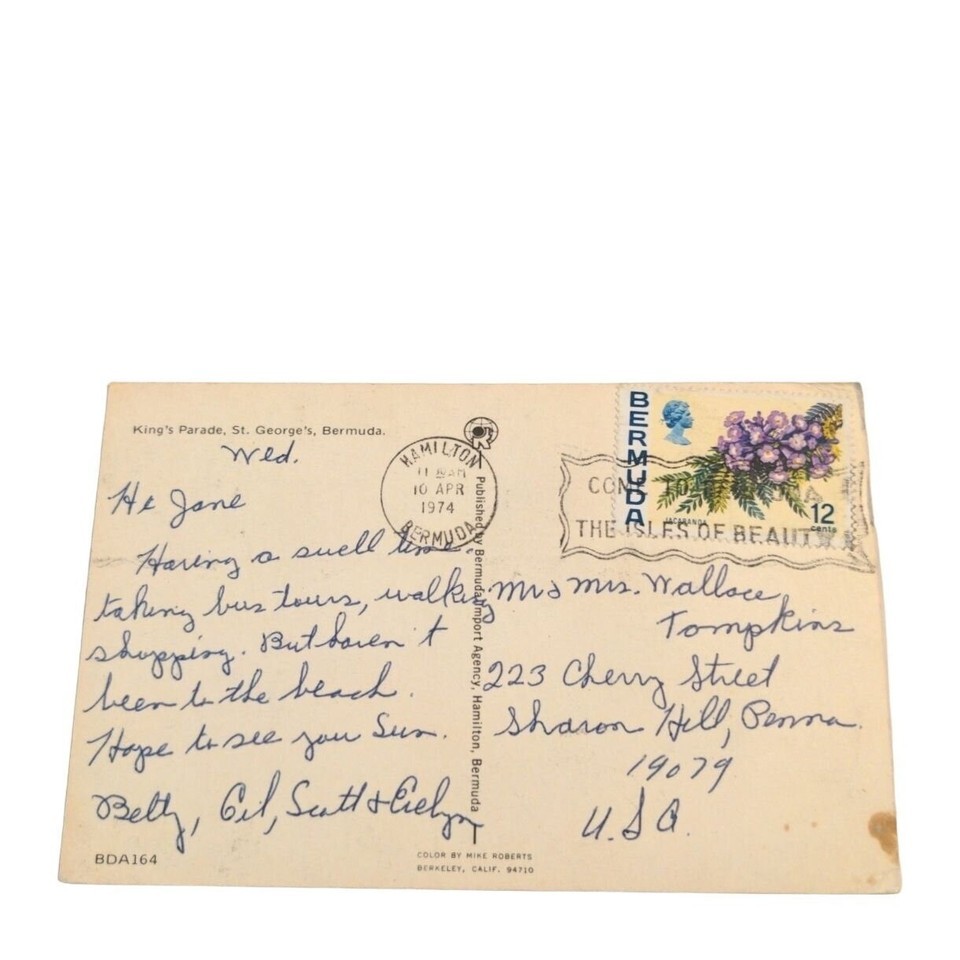 King's Parade, St. George's, Bermuda.
Wed.
Hi Jane
Having a swell time
taking bus tours, walking
shopping. But haven't
been to the beach.
Hope to see you Sun.
Betty, Gil, Scott & Evelyn
BDA164
HAMILTON
11 AM
10 APR
1974
BERMUDA
Published by Bermuda Import Agency, Hamilton, Bermuda
COLOR BY MIKE ROBERTS
BERKELEY, CALIF. 94710
BERMUDA
JACARANDA
12
cents
COME TO
THE ISLES OF BEAUTY
Mr & Mrs. Wallace
Tompkins
223 Cherry Street
Sharon Hill, Penna.
19079
U.S.A.